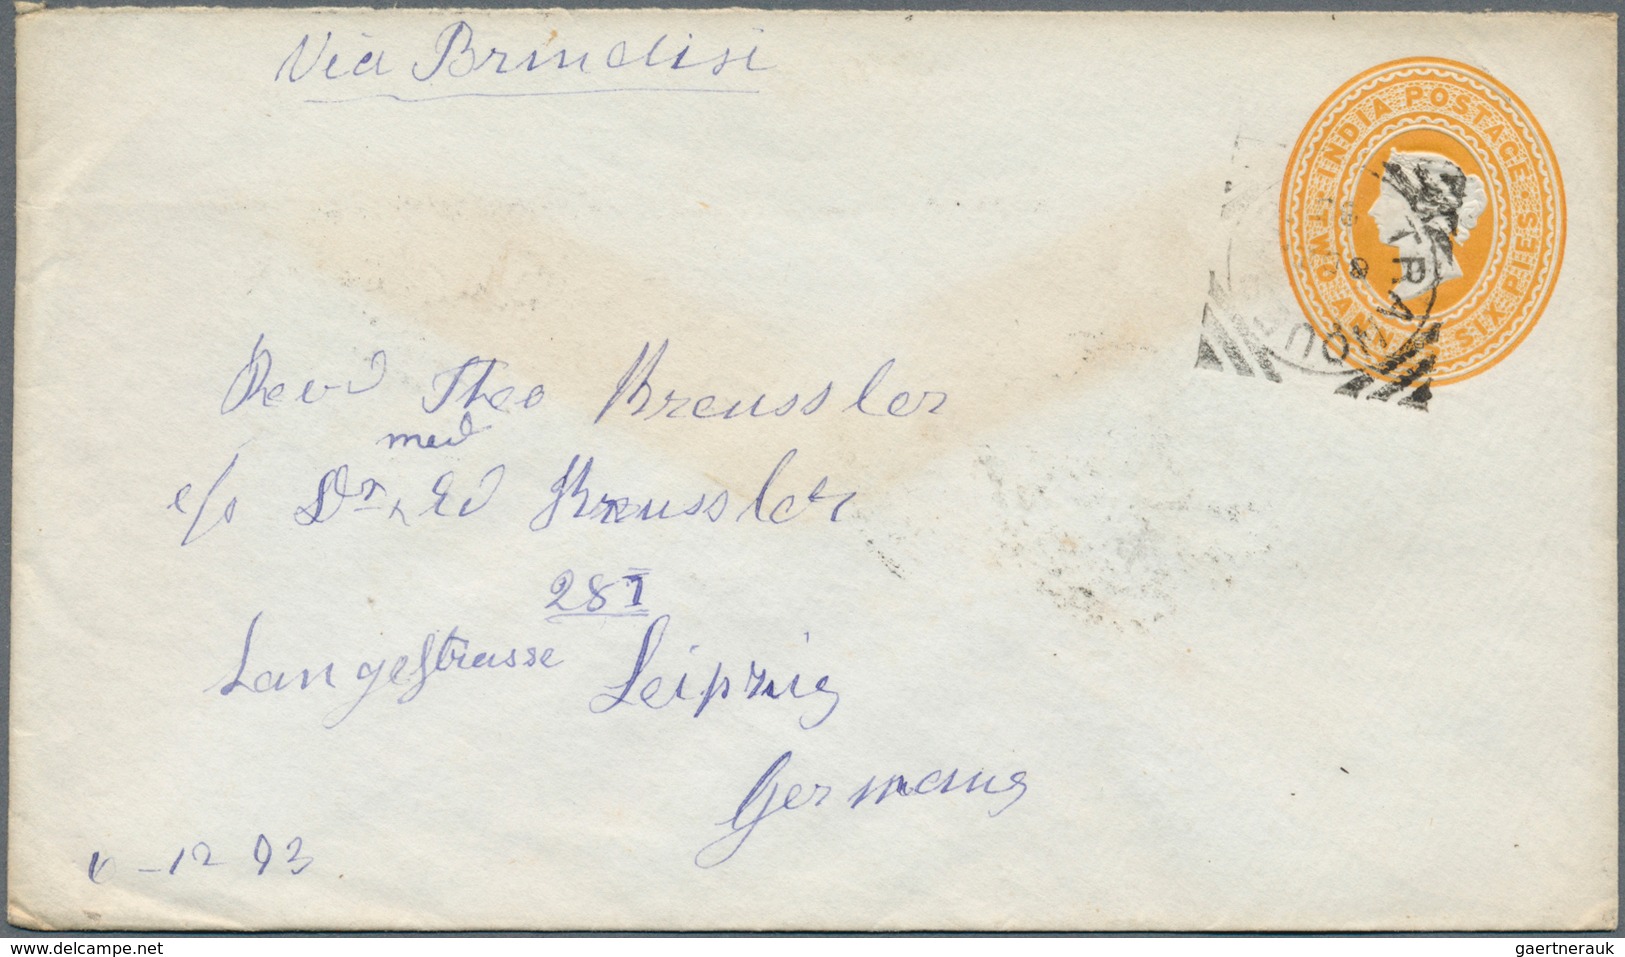 Via Brindisi
INDIA POSTAGE
TWO ANNAS SIX PIES
TRANQU
Revd Theo Kreussler
med
c/o Dr. Ed Kreussler
28 I
Langestrasse Leipzig
Germany
6-12 93
www.delcampe.net
gaertnerauk